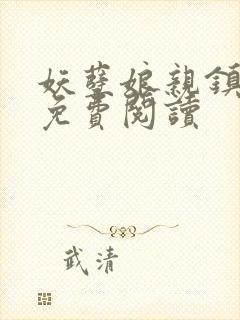 妖孽娘親鎮
免費閱讀
武清